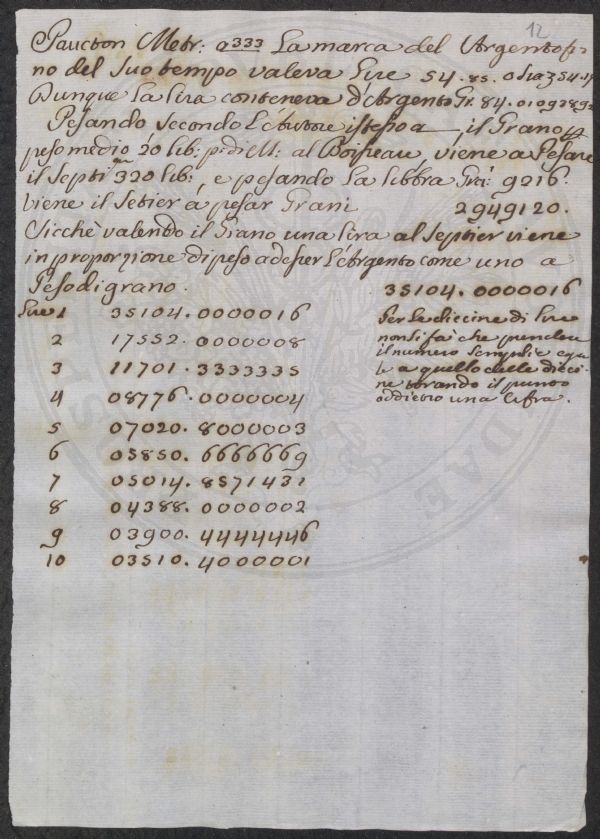 12
Paucton Metr: a 333 La marca del Argento fi-
no del Suo tempo valeva Lire 54. 85. o sia 354.19
Dunque La lira conteneva d'Argento Gr. 84.0109289
Pesando secondo L'Autore istesso il Grano
peso medio 20 lib: p. di M: al Boisseau, viene a Pesare
il Septi 320 lib: , e pesando La libbra Gra: 9216.
viene il Setier a pesar Grani 2949120.
Sicchè valendo il Grano una Lira al Septier viene
in proporzione di peso ad esser L'Argento come uno a
Peso di grano. 35104.0000016
Lire 1 35104.0000016
2 17552.0000008
3 11701.3333335
4 08776.0000004
5 07020.8000003
6 05850.6666669
7 05014.8571431
8 04388.0000002
9 03900.4444446
10 03510.4000001
Per Le diecine di Lire
non si fà che prendere
il numero semplice equa
le a quello delle dieci-
ne tirando il punto
addietro una Cifra.